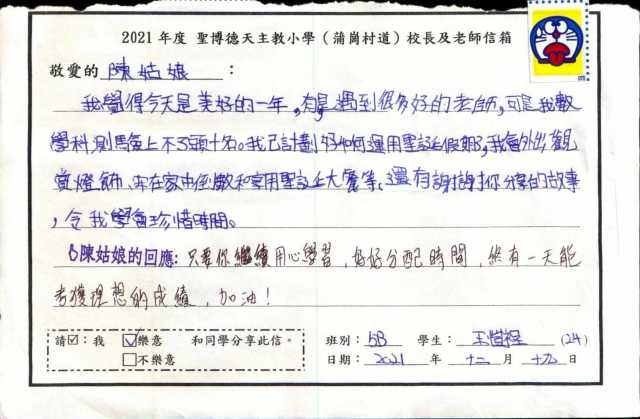 2021年度 聖博德天主教小學(蒲崗村道)校長及老師信箱
敬愛的 陳姑娘 :
我覺得今天是美好的一年,有是遇到很多好的老師,可是我數
學科測驗上不了頭十名。我已計劃好如何運用聖誕假期了,我會外出觀
賞燈飾、在家中倒數和享用聖誕大餐等。還有謝謝你分享的故事
,令我學會珍惜時間。
陳姑娘的回應:只要你繼續用心學習,好好分配時間,終有一天能
考獲理想的成績,加油!
請☑:我 ☑樂意 和同學分享此信。
□不樂意
班別: 5B 學生: 王 (24)
日期: 2021 年 十二 月 十九 日